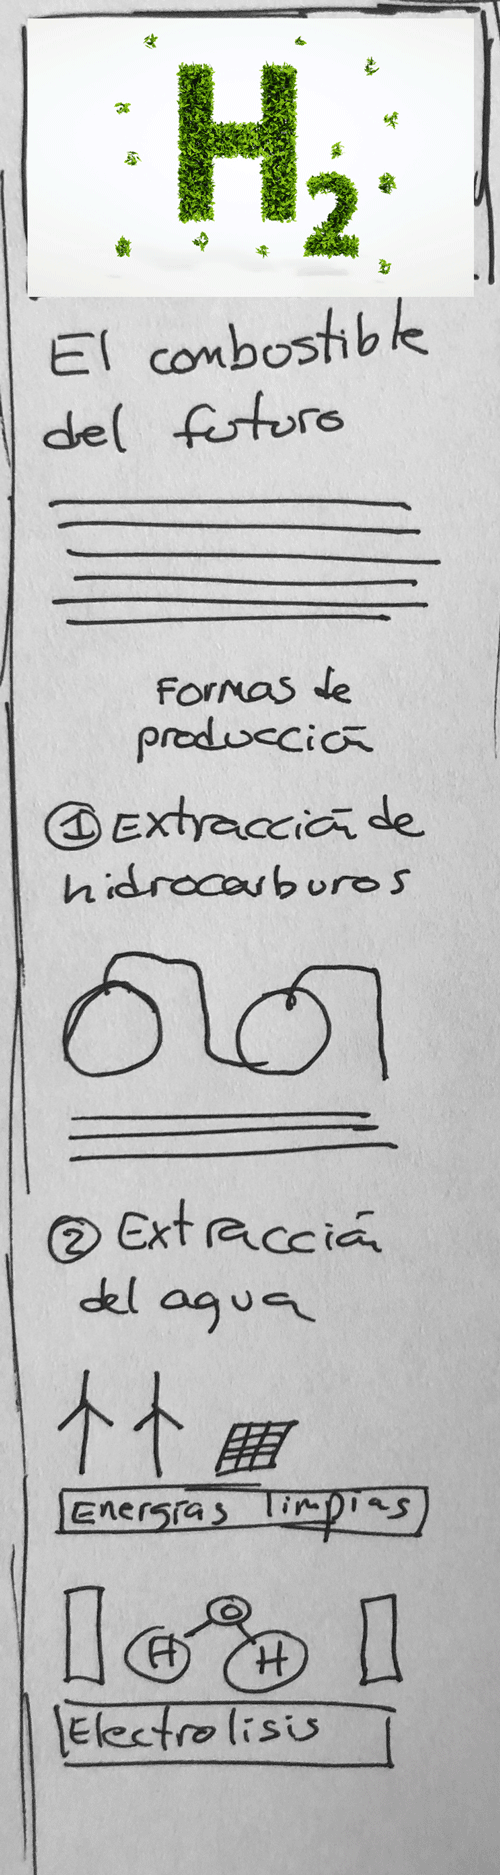 H2
El combustible
del futuro
Formas de
producción
① Extracción de
hidrocarburos
② Extracción
del agua
Energías limpias
O
H H
Electrolisis